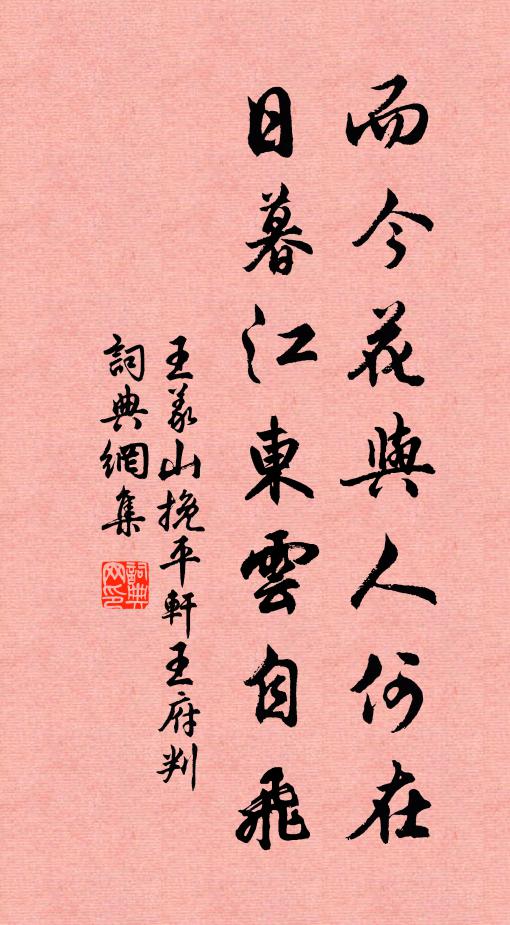 而今花與人何在
日暮江東雲自飛
王義山挽平軒王府判
詞典網集
詞典
网印